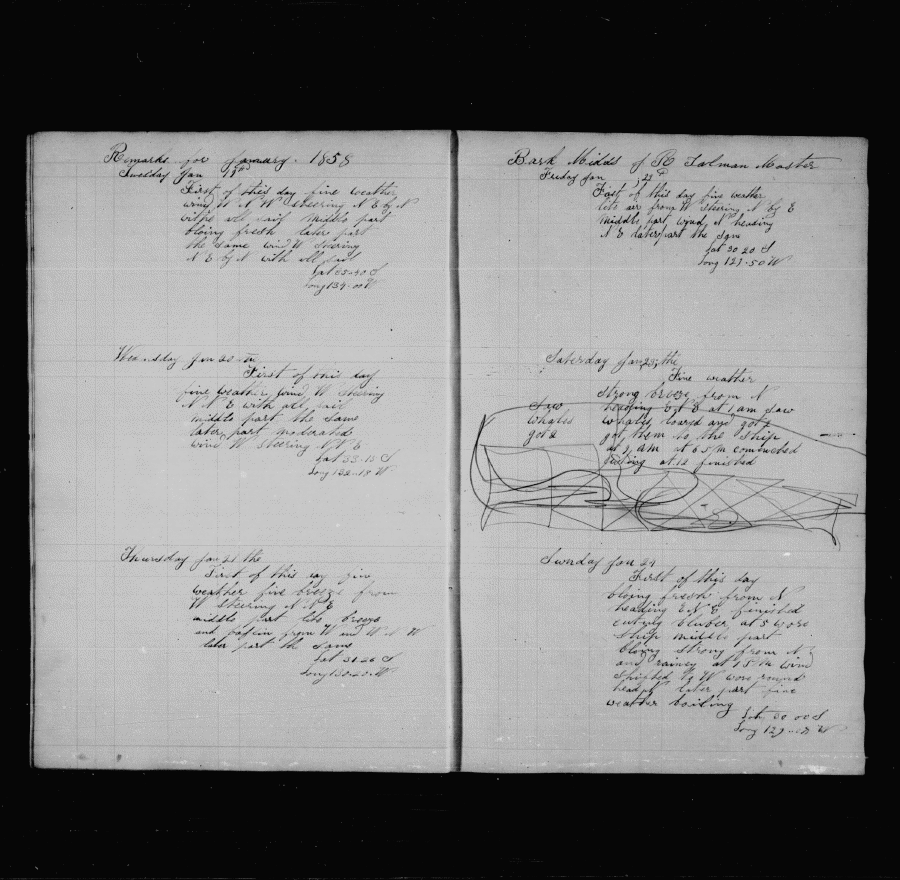 Remarks for January. 1858
Tuesday Jan 19th
First of this day fine weather
wind W N W steering N E by N
with all sail middle part
bloing fresh later part
the same wind W Steering
N E by N with all sail
Lat 35-40 S
Long 134-00 W
Wednesday Jan 20
First of this day
fine weather wind W Steering
N N E with all sail
middle part the same
later part moderated
wind W Steering N N E
Lat 33-15 S
Long 132-18 W
Thursday Jan 21 the
First of this day fine
weather fine breeze from
W Steering N N E
middle part the breeze
and from W and W N W
later part the same
Lat 31-26 S
Long 130-20 W
Bark Midds of R Tolman Master
Friday Jan 22
First of this day fine weather
lite air from W Steering N by E
middle part wind N heading
N E later part the same
Lat 30 20 S
Long 129-50 W
Saterday Jan 23 the
Fine weather
strong breeze from N
Saw heading E N E at 1 am saw
whales whales lowerd and got 2
got 2 got them to the ship
at am at 6 comencted
cuting at 12 finished
Sunday Jan 24
First of this day
bloing fresh from N
heading E N E finished
cuting bluber at 5 wore
ship middle part
bloing strong from N
and rainey at 1 wind
shifted to W wore round
later part fine
weather boiling
Lat 30 00 S
Long 129 W